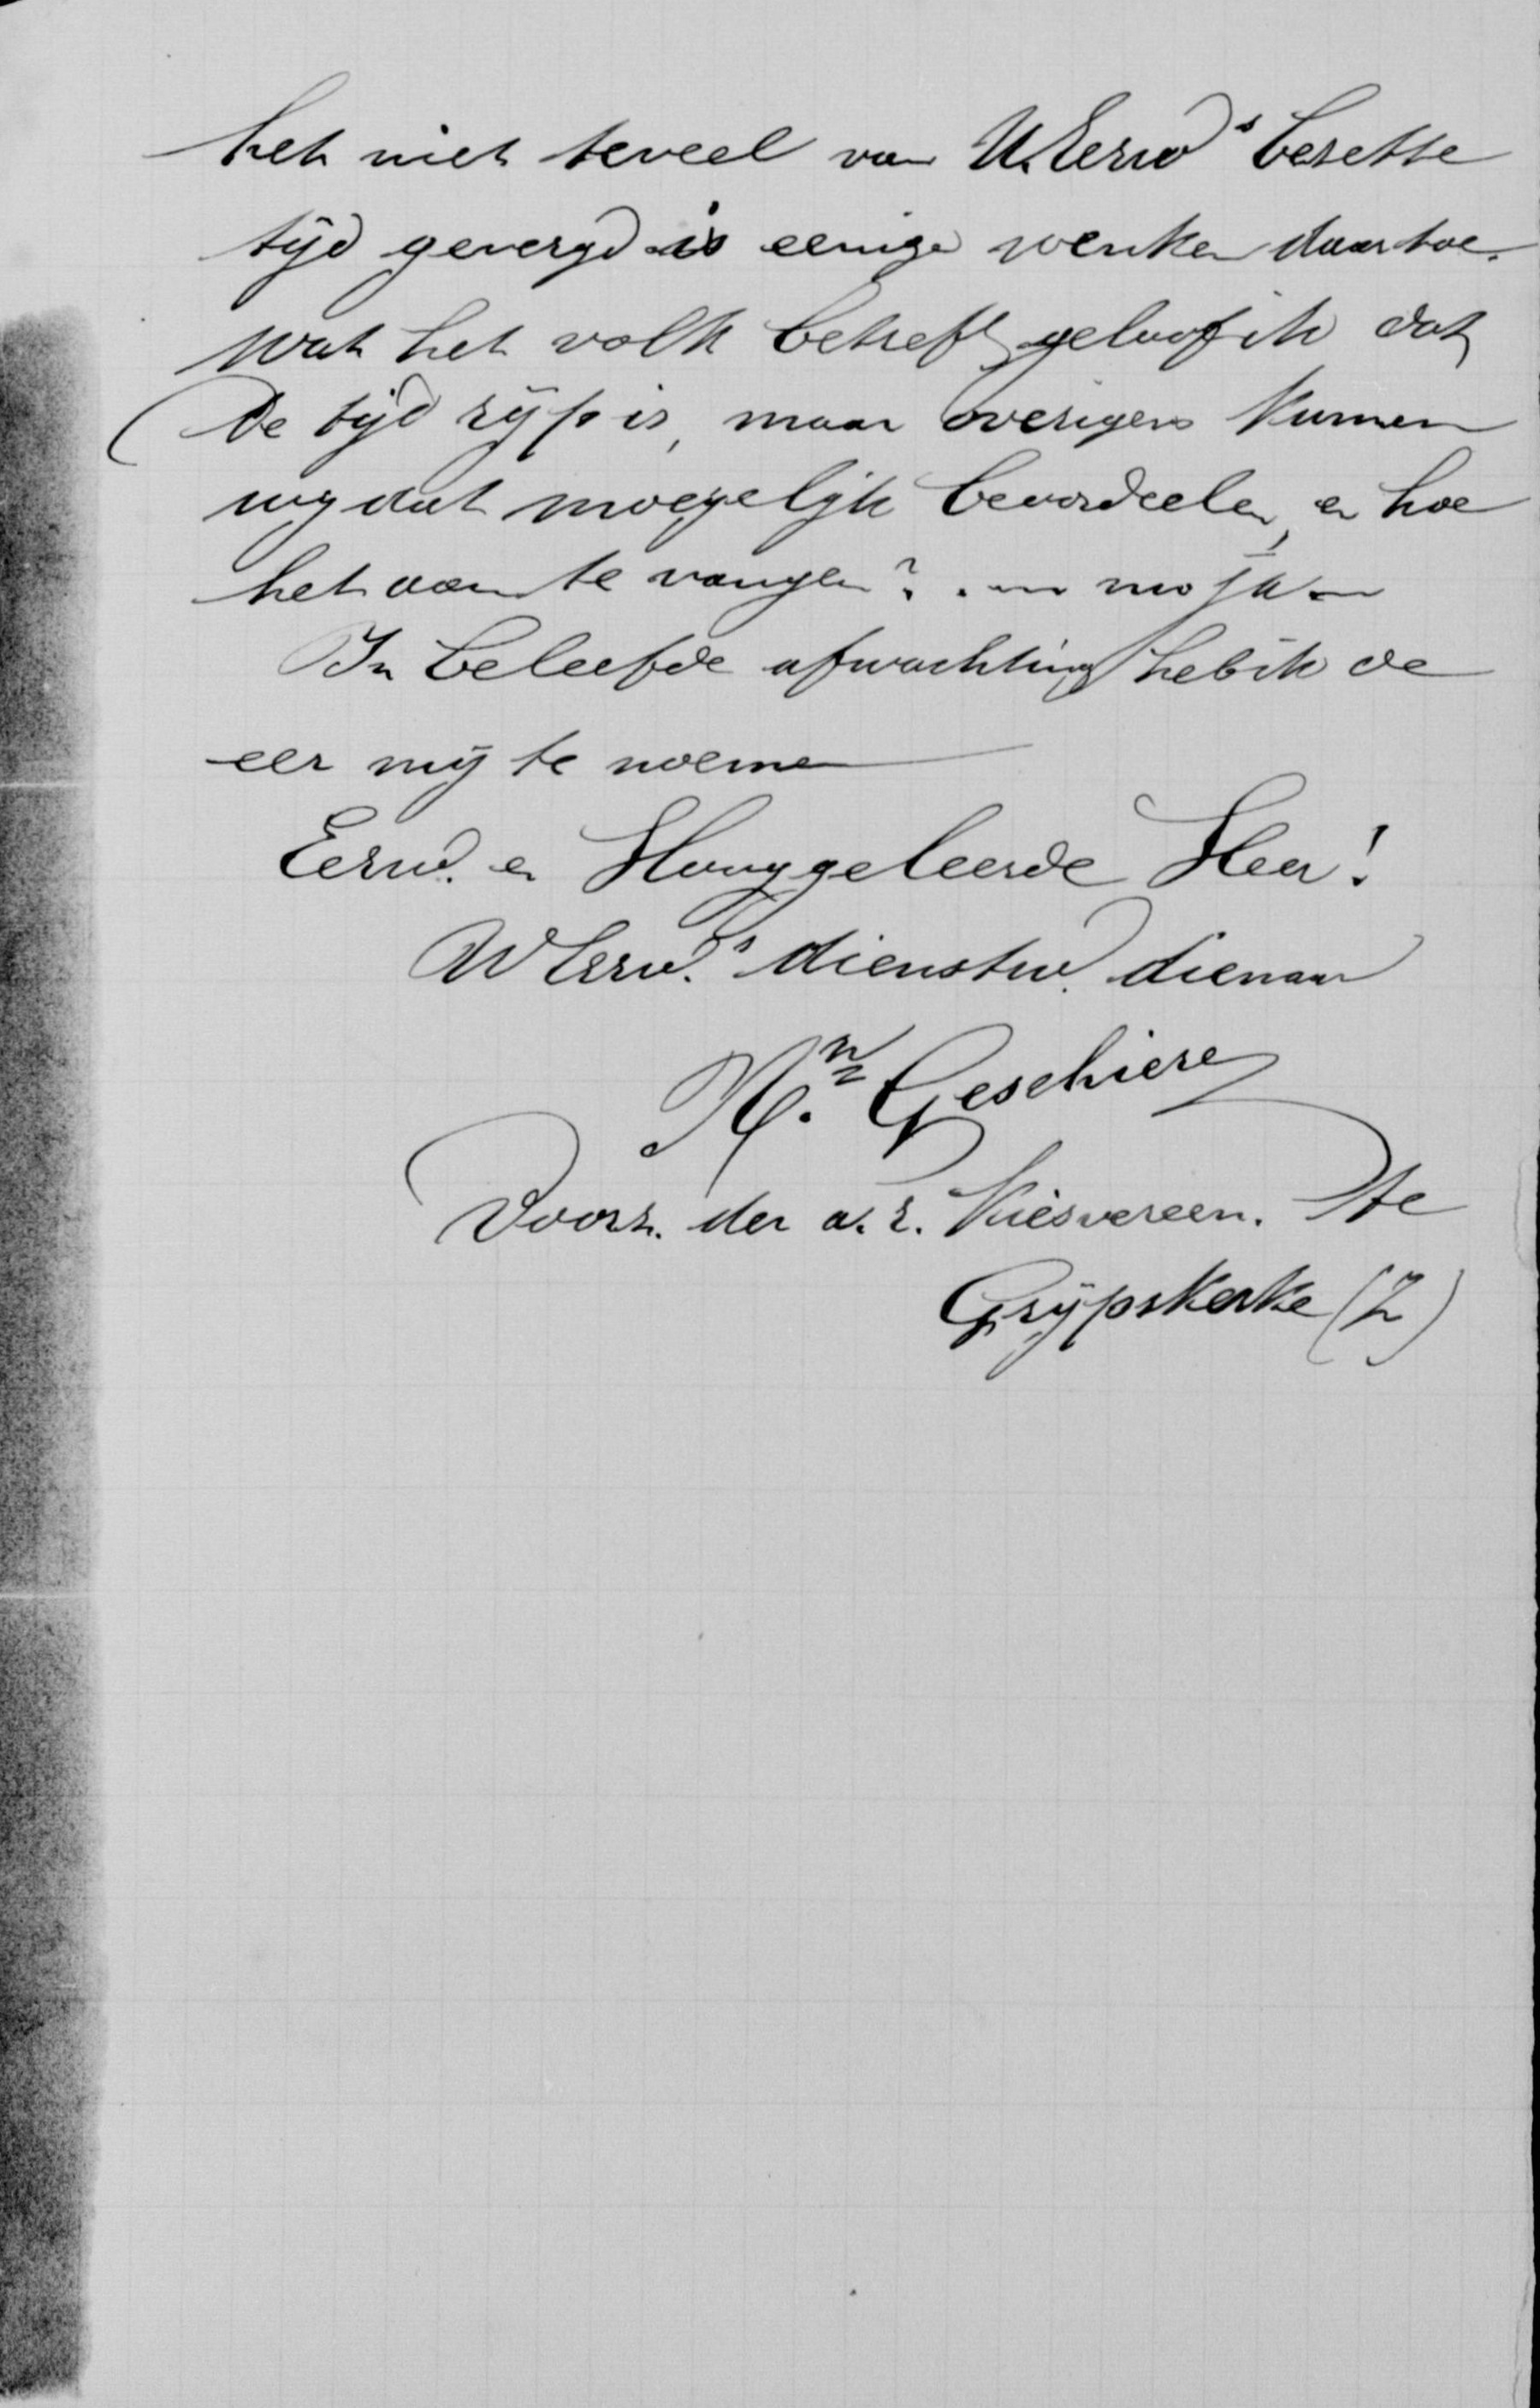 het niet teveel van U.Eerwds bezette
tijd gevergd is eenige wenken daartoe.
Wat het volk betreft geloof ik dat
De tijd rijp is, maar overigens kunnen
wij dat moeyelijk beoordeelen, en hoe
het aan te vangen? zoo ja
In beleefde afwachting heb ik de
eer mij te noemen
Eerwd. en Hooggeleerde Heer!
UEerwd.s dienstw. dienaar
Geschiere
Voorz. der a. r. Kiesvereen. te
Grijpskerke (Z)